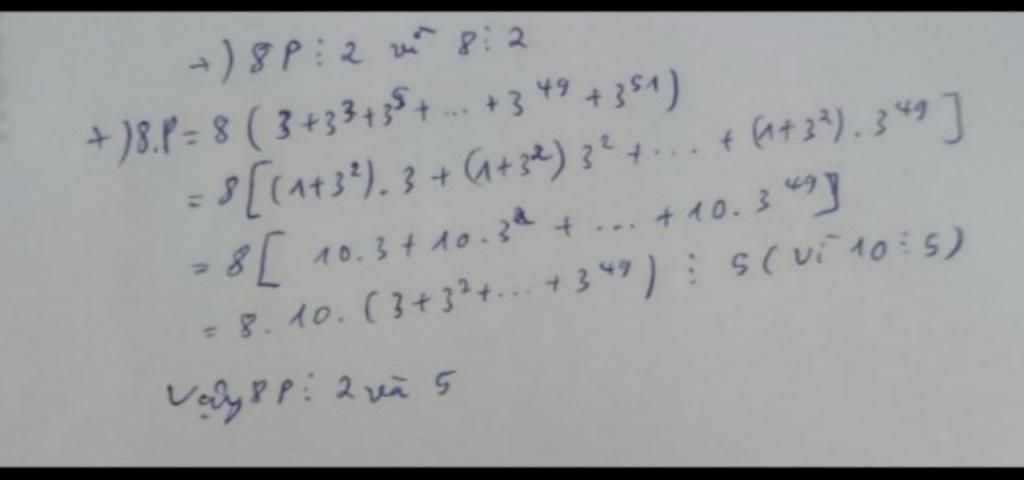 +) 8P ⋮ 2 vì 8 ⋮ 2
+) 8.P = 8 ( 3 + 3³ + 3⁵ + ... + 3⁴⁹ + 3⁵¹ )
= 8 [ (1+3²).3 + (1+3²) 3² + ... + (1+3²).3⁴⁹ ]
= 8 [ 10.3 + 10.3² + ... + 10.3⁴⁹ ]
= 8.10.(3 + 3² + ... + 3⁴⁹) ⋮ 5 ( vì 10 ⋮ 5 )
Vậy 8P ⋮ 2 và 5